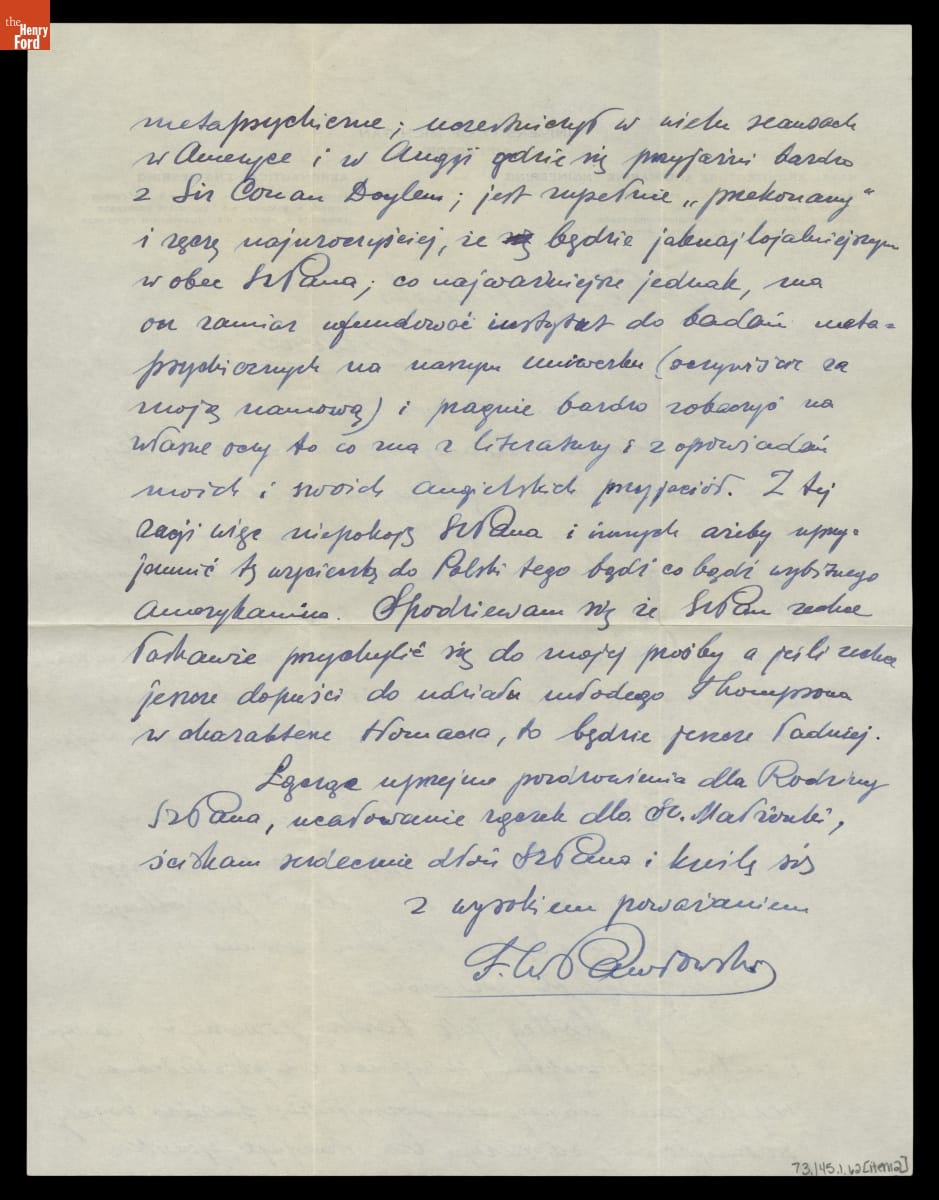 the
Henry
Ford
metapsychiczne; uczestniczył w wielu seansach
w Ameryce i w Anglji gdzie się przyjaźni bardzo
z Sir Conan Doylem; jest zupełnie „przekonany"
i ręczę najuroczyściej, że będzie jaknajlojalniejszym
wobec SzPana; co najważniejsze jednak, ma
on zamiar ufundować instytut do badań meta=
psychicznych na naszym uniwerku (oczywiście za
moją namową) i pragnie bardzo zobaczyć na
własne oczy to co zna z literatury i z opowiadań
moich i swoich angielskich przyjaciół. Z tej
racji więc niepokoję SzPana i innych ażeby uprzy-
jemnić tę wycieczkę do Polski tego bądź co bądź wybitnego
Amerykanina. Spodziewam się że SzPan zechce
łaskawie przychylić się do mojej prośby a jeśli zechce
jeszcze dopuści do udziału młodego Thompsona
w charakterze tłomacza, to będzie jeszcze ładniej.
Łącząc uprzejme pozdrowienia dla Rodziny
SzPana, ucałowanie rączek dla Sz. Małżonki,
ściskam serdecznie dłoń SzPana i kreślę się
z wysokiem poważaniem
F. W. Pawlowski
73.145.1.62[item2]